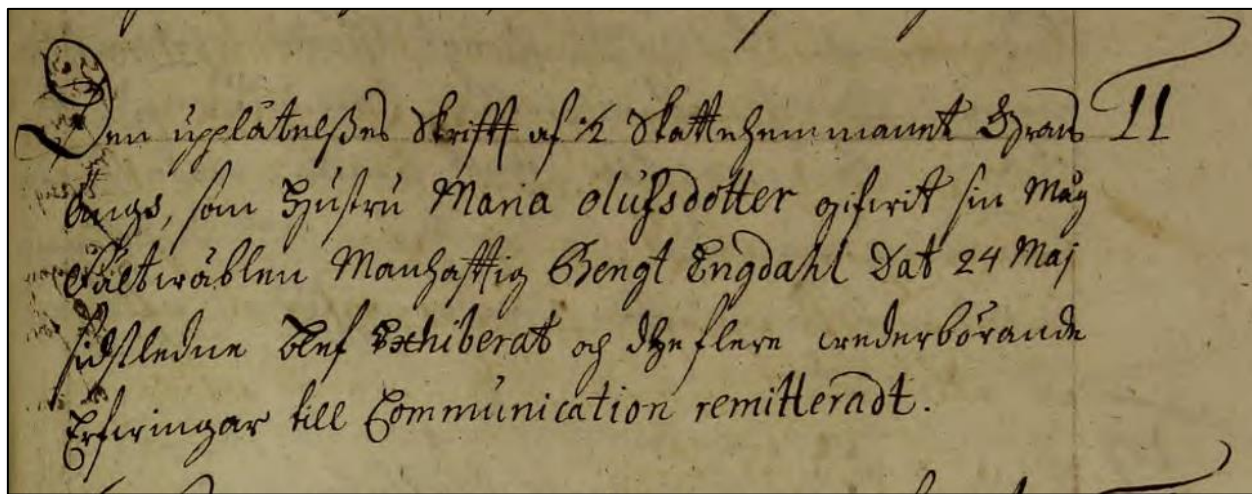 Den upplåtelßes Skrifft af 1/2 Skattehemmanet Grans 11
bergs, som Hustru Maria olufsdotter gifwit sin Måg
Fältwäblen Manhafftig Bengt Engdahl Dat 24 Maj
sidstledne blef Exhiberat och dhe flere wederbörande
Erfwingar till Communication remitteradt.